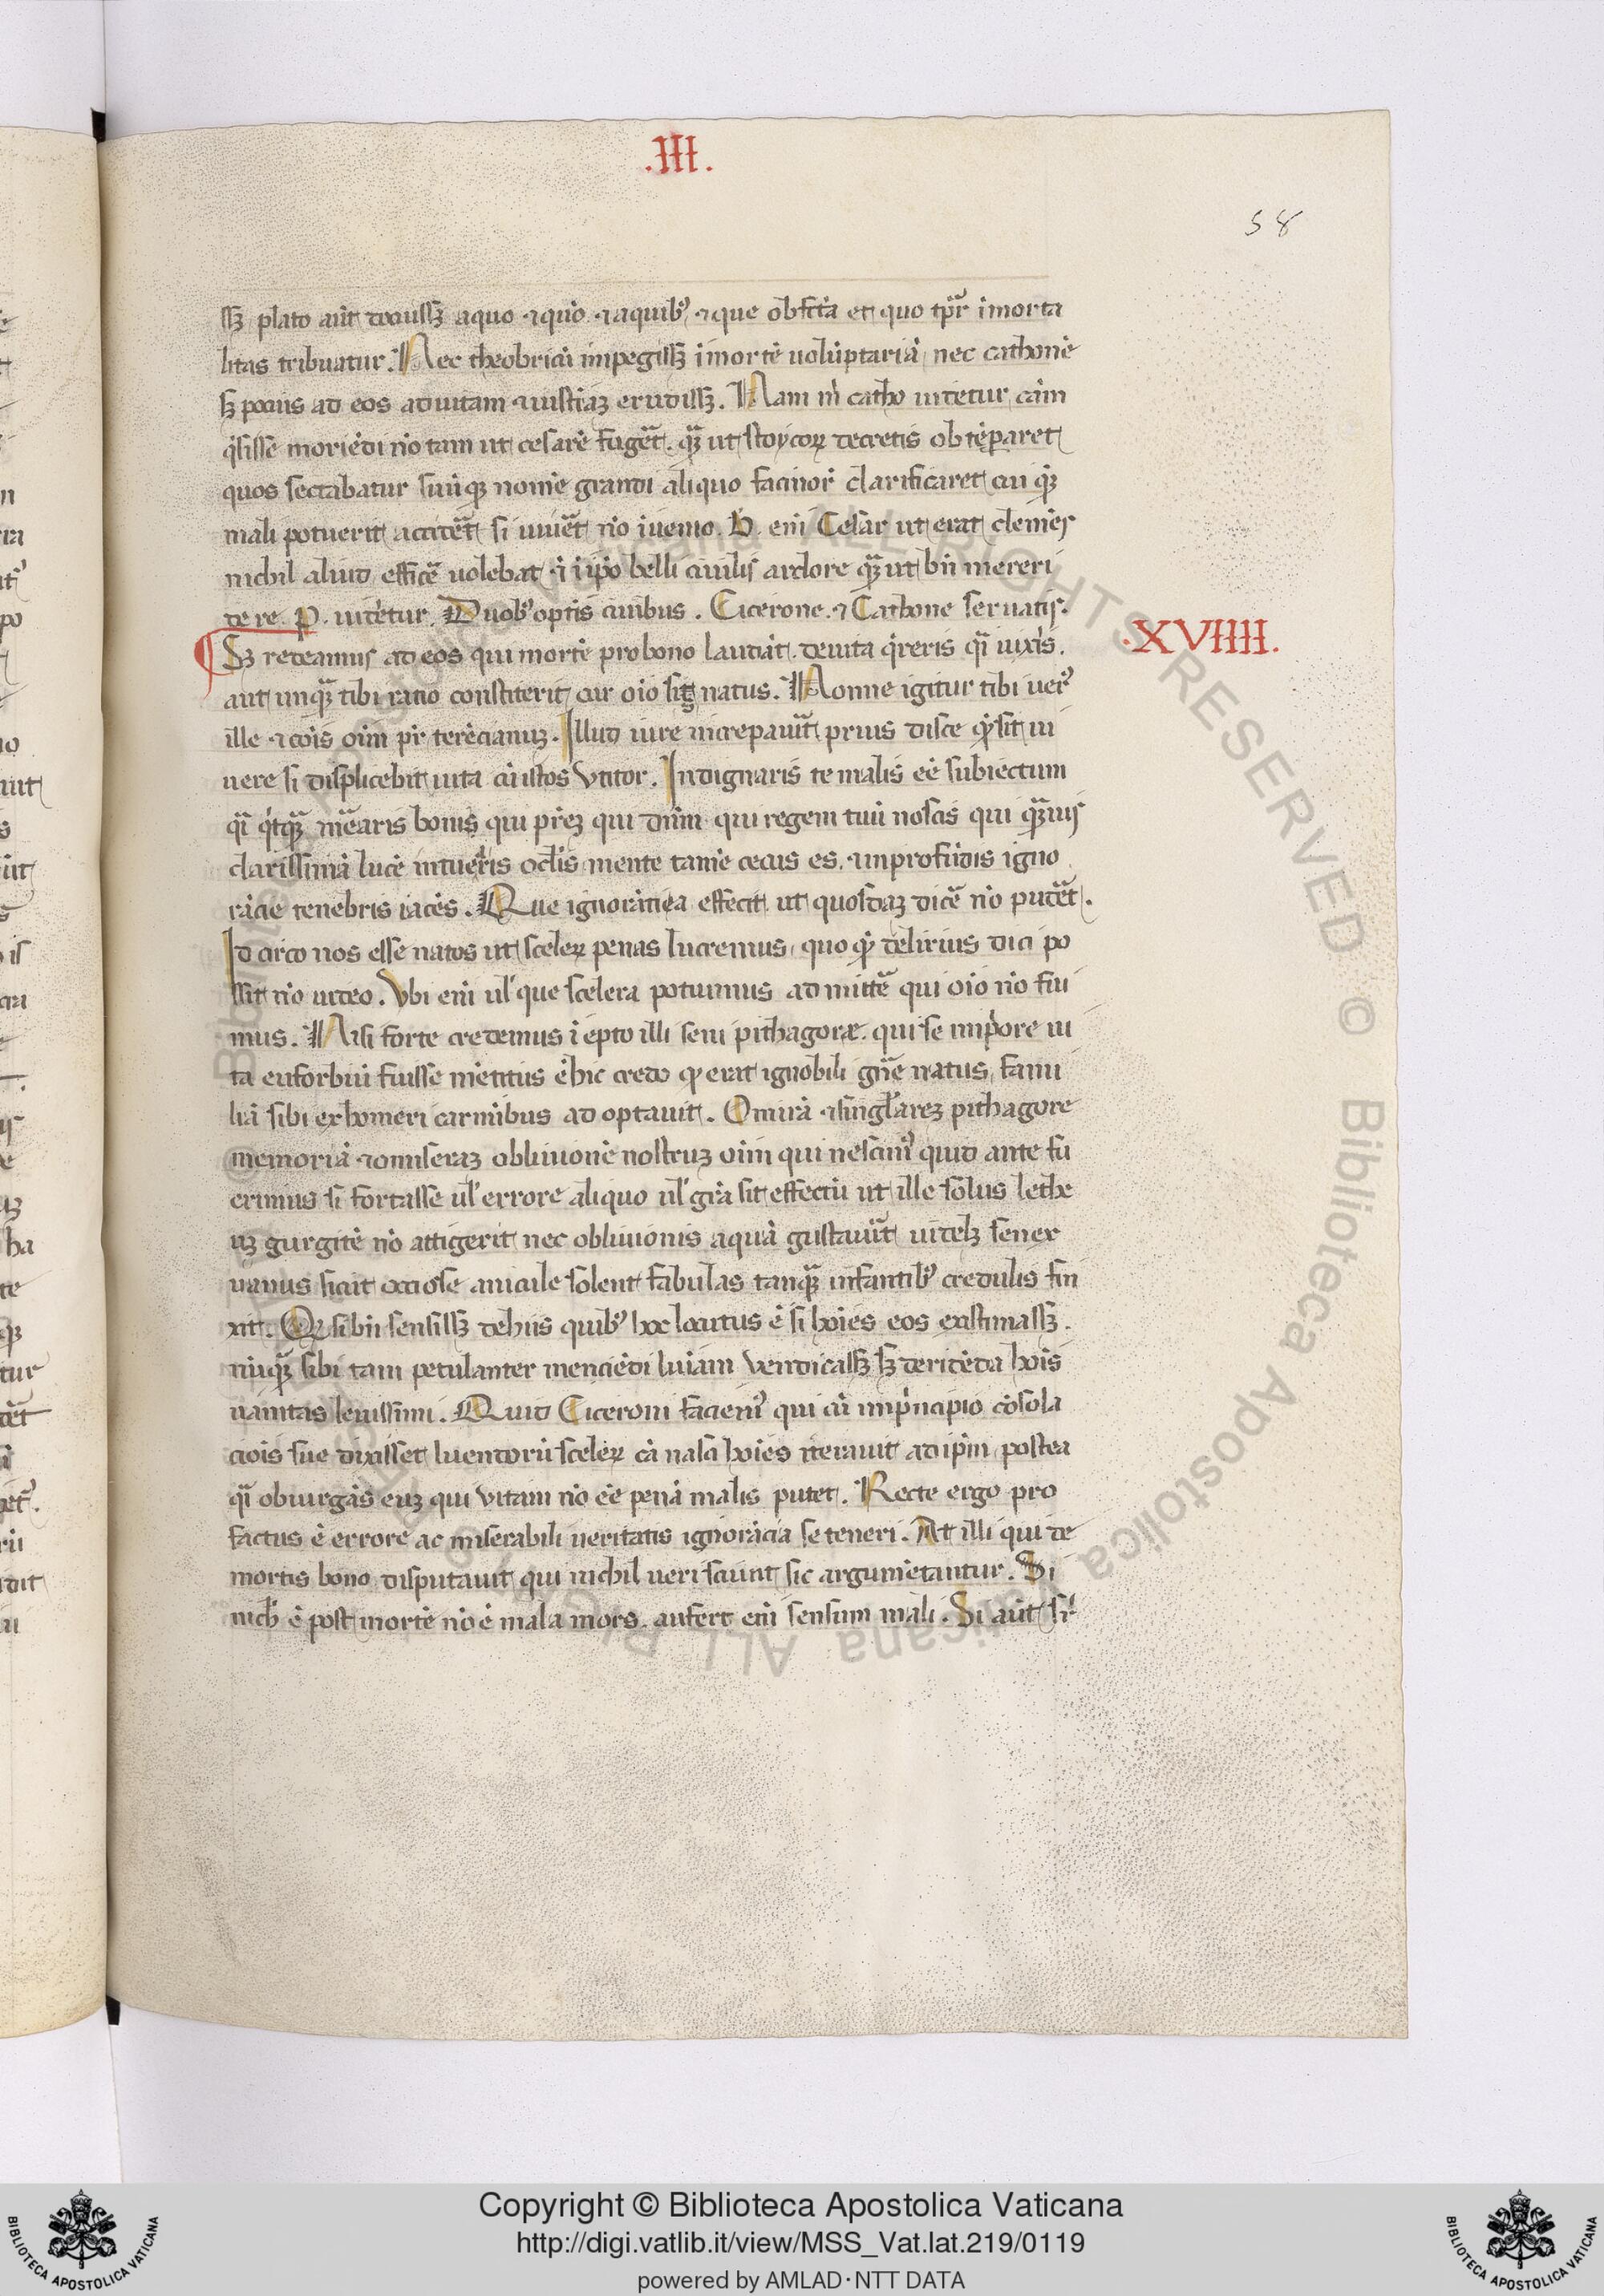 .III.
58
ssꝫ plato aut̄ docuissꝫ aquo ⁊ quō ⁊ aquibꝰ ⁊ que ob fc̄ta et quo tp̄r īmorta
litas tribuatur. Nec theobrotū impegissꝫ ī mortē uolūptariā nec cathonē
sꝫ pocius ad eos ad uitam ⁊ iusticiāꝫ erudissꝫ. Nam m̄ catho uidetur cām
q̄sisse moriēdi nō tam ut cesarē fugēt. qꝫ̄ ut stoycoꝝ decretis obtēperaret
quos sectabatur suūqꝫ nomē grandi aliquo facinor̄ clarificaret cui qͥꝫ
mali potuerit accidēt si uiuēt nō īuenio. G. eni Cesar ut erat clemēs
nichil aliud efficē uolebat ⁊ ī ip̄o belli ciuilis ardore qꝫ̄ ut bn̄ mereri
de re. P. uidētur. Duobꝰ optīs ciuibus. Cicerone. ⁊ Cathone seruatis.
.XVIIII.
Sꝫ redeamus ad eos qui mortē pro bono laudāt. de uita q̄reris qi uixis.
aut unqꝫ̄ tibi ratio constiterit cur oīo sis natus. Nonne igitur tibi uerꝰ
ille ⁊ cōis oīm pr̄ terēcianuꝫ. Illud iure increpauit̄ prius disce qͥ sit ui
uere si displicebit uita cū istos Vtitor. Indignaris te malis eē subiectum
qi qͥcqꝫ̄ mēaris bonis qui pr̄eꝫ qui dn̄m qui regem tuū nescis qui qꝫ̄uis
clarissimā lucē intuearis oclis mente tamē cecus es. ⁊ in profūdis igno
rācie tenebris iacēs. Que ignorāncia effecit ut quosdaꝫ dicē nō pudēt.
Id circo nos esse natos ut sceleꝝ penas lueremus quo qͥ delirius dici po
ssit nō uideo. Vbi eni ul' que scelera potuimus ad mittē qui oīo nō fui
mus. Nisi forte credemus īepto illi seni pithagoræ. qui se inpͥore ui
ta euforbiū fuisse mētitus ē hic credo qͥ erat ignobili gn̄e natus fami
liā sibi ex homeri carmībus ad optauit. O mirā ⁊ singlareꝫ pithagore
memoriā ⁊ o miseraꝫ obliuionē nostruꝫ oīm qui nescimꝰ quid ante fu
erimus si fortasse ul' errore aliquo ul' grā sit effectū ut ille solus lethe
uꝫ gurgitē nō attigerit nec obliuionis aquā gustauit̄ uidelꝫ senex
uanus sicut ociose anicule solent fabulas tanqꝫ̄ infantibꝰ credulis fin
xit. Qͥ si bn̄ sensissꝫ de hiis quibꝰ hoc locutus ē si hoīes eos existimassꝫ.
nūqꝫ̄ sibi tam petulanter menciēdi lniām Vendicassꝫ sꝫ deridēda hoīs
uanitas leuissimi. Quid Ciceroni faciemꝰ qui cū inpͥncipio cōsola
ciōis sue dixisset luendorū sceleꝝ cā nasci hoīes iterauit ad ip̄m postea
qi obiurgās euꝫ qui vitam nō eē penā malis putet. Recte ergo pro
factus ē errore ac miserabili ueritatis ignorācia se teneri. At illi qui de
mortis bono disputauit qui nichil ueri sciunt sic argumētantur. Si
nich̄ ē post mortē nō ē mala mors. aufert eni sensum mali. Si aut̄ si
Copyright © Biblioteca Apostolica Vaticana
http://digi.vatlib.it/view/MSS_Vat.lat.219/0119
powered by AMLAD·NTT DATA